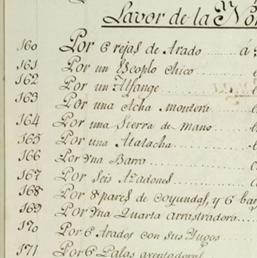 Lavor de la No
160 Por 6 rejas de Arado
161 Por un Escoplo Chico
162 Por un Alfange
163 Por una Acha montera
164 Por una Sierra de mano
165 Por una Atatacha
166 Por Vna Barra
167 Por Seis Azadones
168 Por 8 pares de Coyundas, y 6 bar
169 Por Vna Quarta arrastradora
170 Por 6 Arados con sus Yugos
171 Por 6 Palas aventadoras